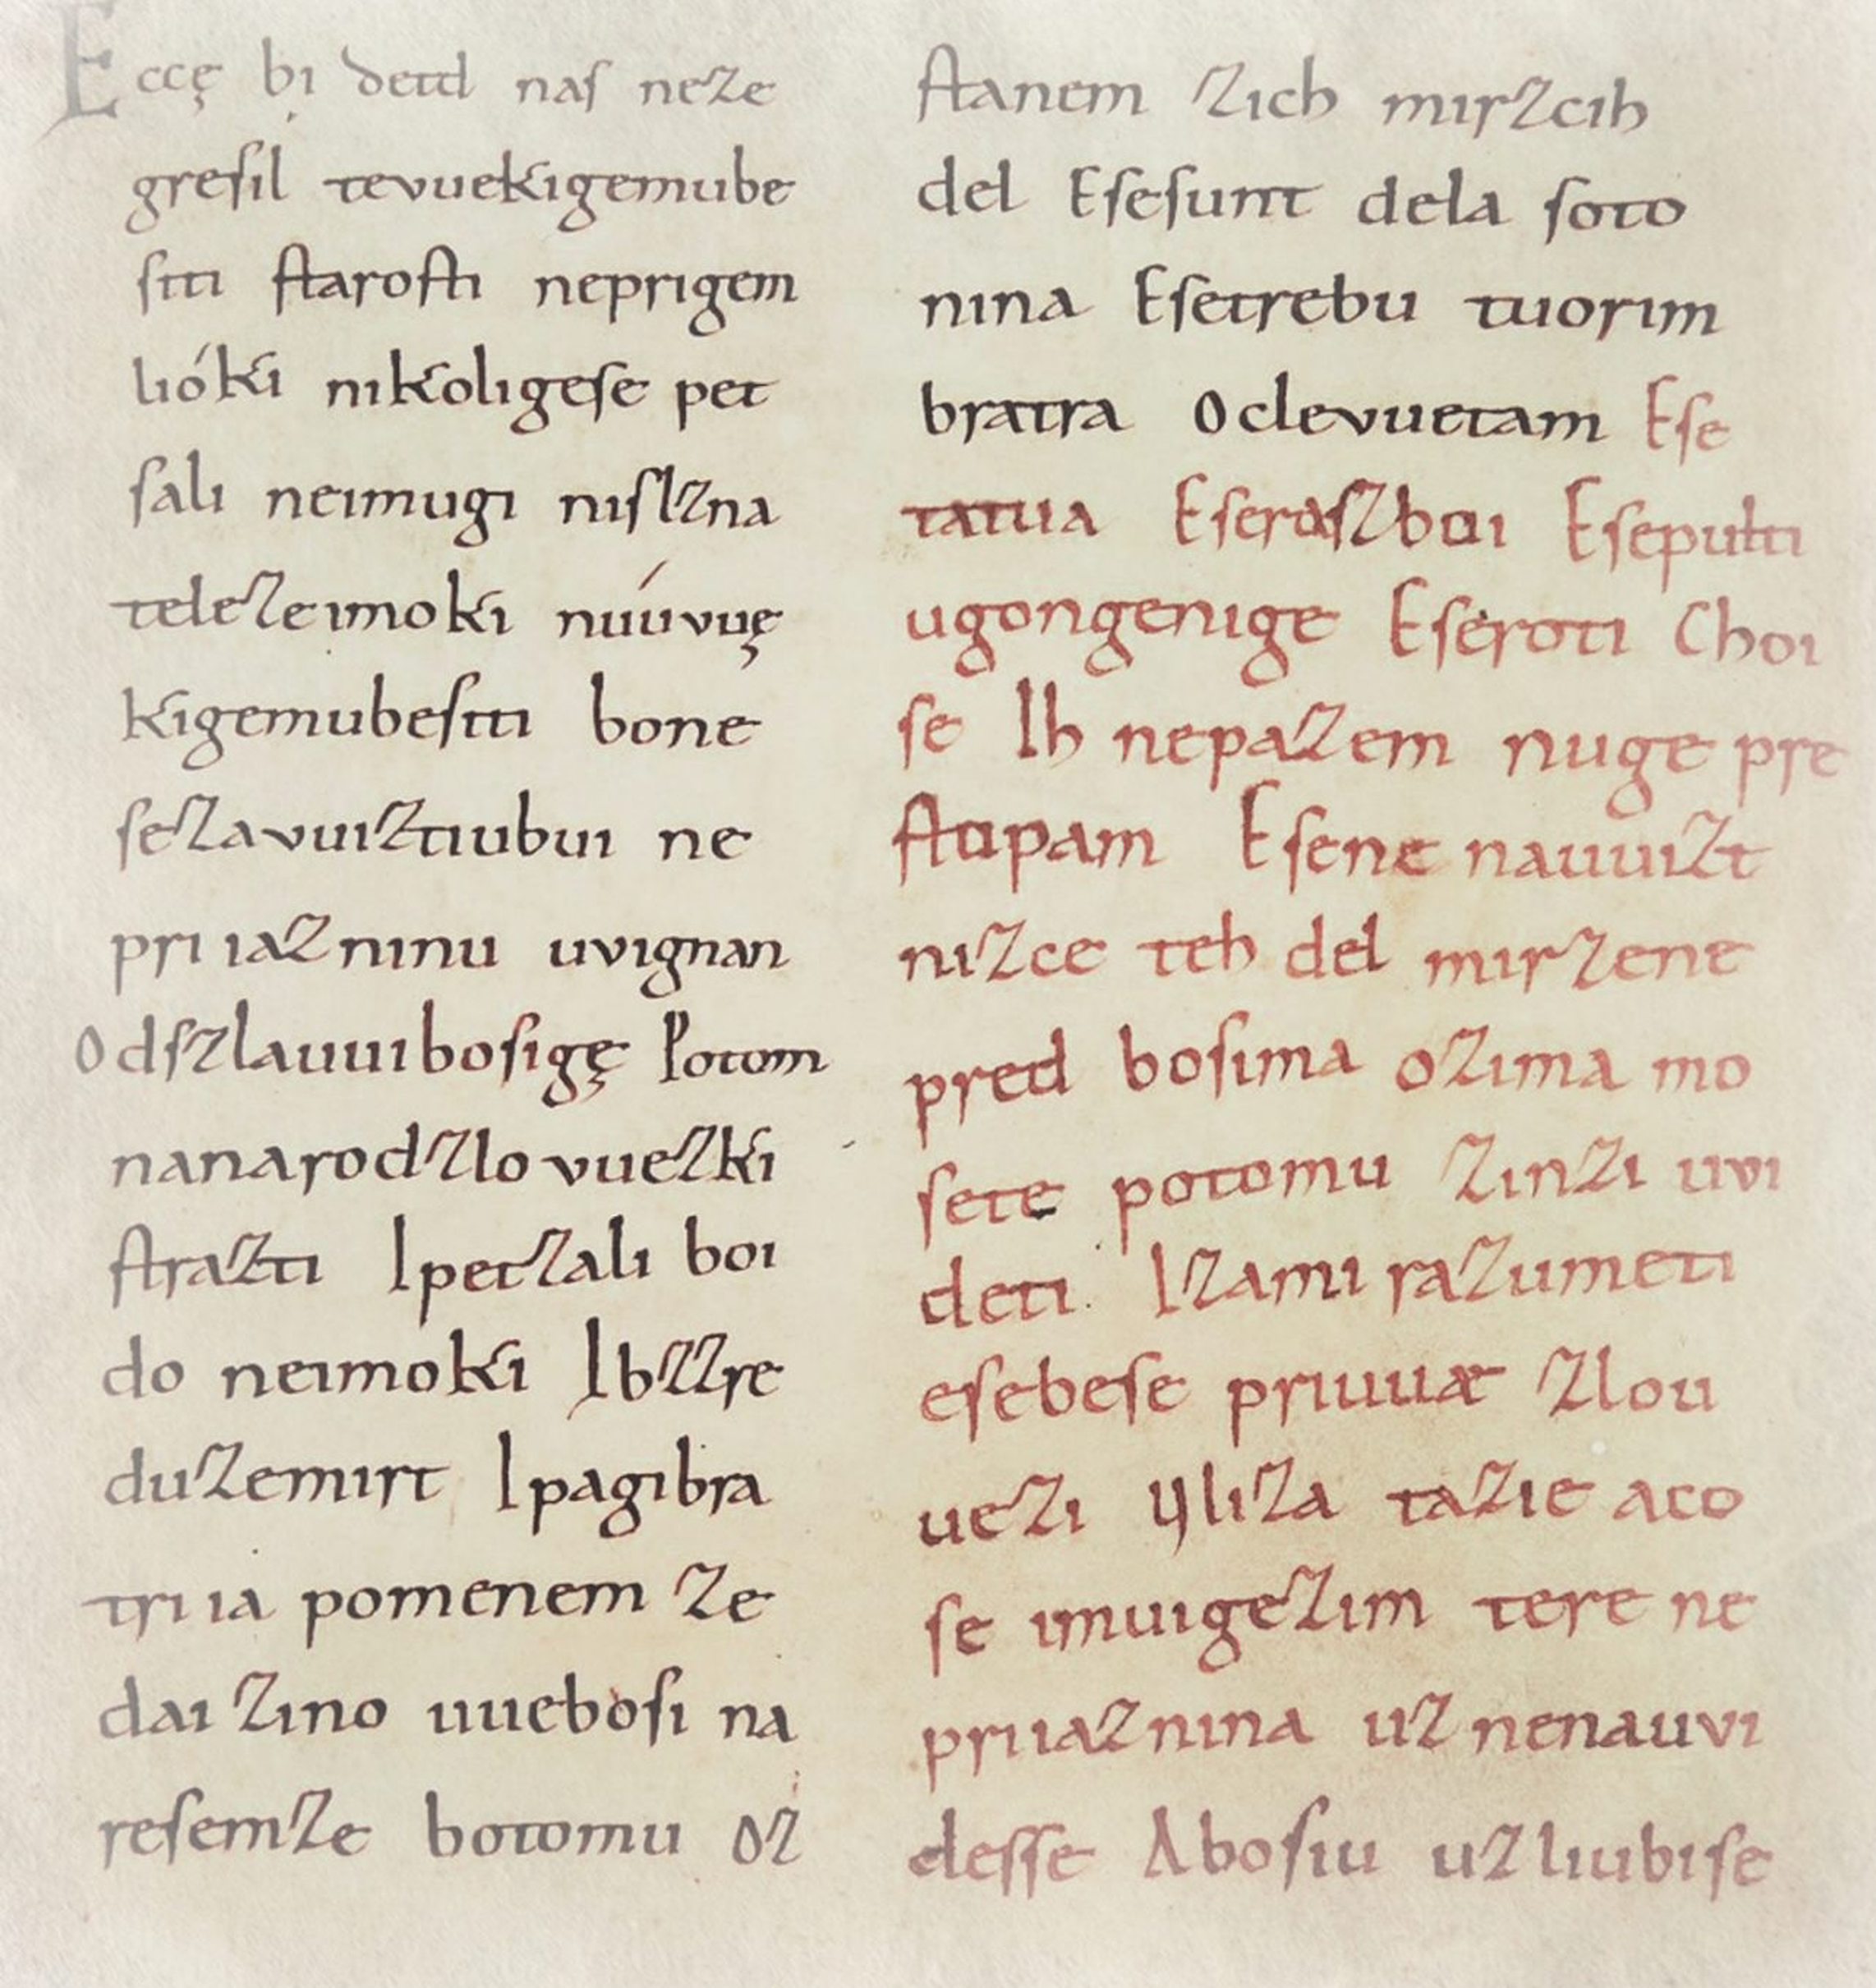 Eccę bi detd naſ neze
greſil tevuekigemube
ſiti ſtaroſti neprigem
lióki nikoligeſe pet
ſali neimugi niſlzna
telezeimoki nuúvuę
kigemubeſiti bone
ſezavuiztiubui ne
priiazninu uvignan
Odſzlauuiboſigę Potom
nanarodzlovuezki
ſtrazti Ipetzali boi
do neimoki Ibzzre
duzemirt Ipagibra
triia pomenem ze
dai zino uueboſi na
reſemze botomu oz
ſtanem zich mirzcih
del Eſeſunt dela ſoto
nina Eſetrebu tuorim
bratra Oclevuetam Eſe
tatua Eſeraſzboi Eſepulti
ugongenige Eſeroti Choi
ſe Ih nepazem nuge pre
ſtopam Eſene nauuizt
nizce teh del mirzene
pred boſima ozima mo
ſete potomu zinzi uvi
deti Izami razumeti
eſebeſe priuuæ zlou
uezi ẏliza tazie aco
ſe imuigezim tere ne
priiaznina uznenauvi
deſſe Aboſiu uzliubiſe